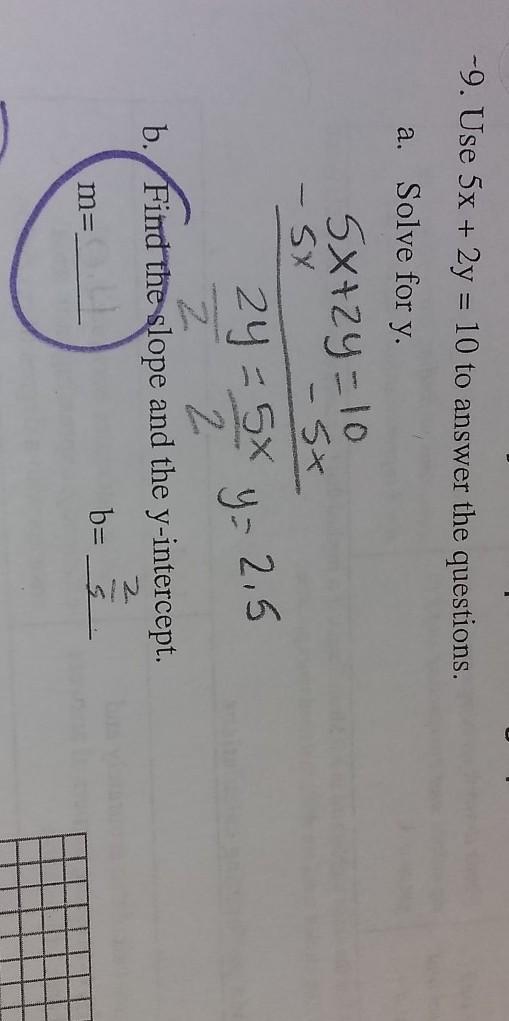 -9. Use 5x + 2y = 10 to answer the questions.
a. Solve for y.
5x+2y=10
-5x -5x
2y = 5x y= 2.5
2 2
b. Find the slope and the y-intercept.
m=______ b= 2/5